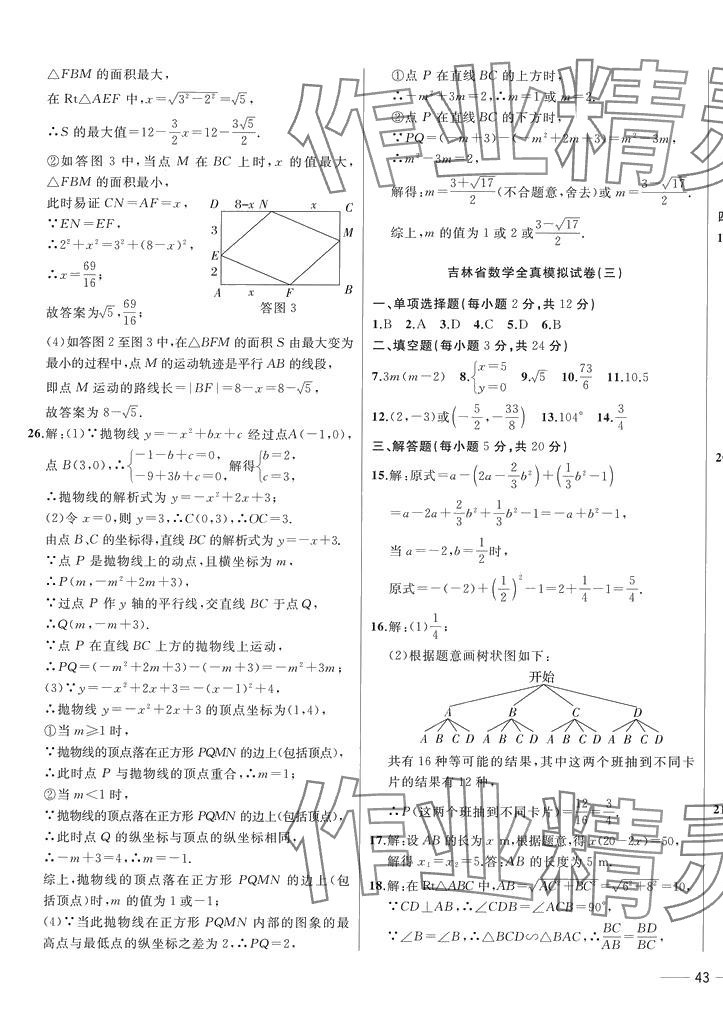 △FBM 的面积最大，
在 Rt△AEF 中，x=√(3²-2²)=√5，
∴S 的最大值=12-3/2x=12-3√5/2.
②如答图 3 中，当点 M 在 BC 上时，x 的值最大，
△FBM 的面积最小，
此时易证 CN=AF=x，
∵EN=EF，
∴2²+x²=3²+(8-x)²，
∴x=69/16；
故答案为√5，69/16；
D 8-x N x C
3
M
E
2
A x F B
答图 3
(4)如答图 2 至图 3 中，在△BFM 的面积 S 由最大变为
最小的过程中，点 M 的运动轨迹是平行 AB 的线段，
即点 M 运动的路线长=|BF|=8-x=8-√5.
故答案为 8-√5.
26.解：(1)∵抛物线 y=-x²+bx+c 经过点A(-1,0)，
点 B(3,0)，∴{-1-b+c=0, -9+3b+c=0, 解得{b=2, c=3,
∴抛物线的解析式为 y=-x²+2x+3；
(2)令 x=0，则 y=3，∴C(0,3)，∴OC=3.
由点 B、C 的坐标得，直线 BC 的解析式为 y=-x+3.
∵点 P 是抛物线上的动点，且横坐标为 m，
∴P(m,-m²+2m+3)，
∵过点 P 作 y 轴的平行线，交直线 BC 于点 Q，
∴Q(m,-m+3)，
∵点 P 在直线 BC 上方的抛物线上运动，
∴PQ=(-m²+2m+3)-(-m+3)=-m²+3m；
(3)∵y=-x²+2x+3=-(x-1)²+4，
∴抛物线 y=-x²+2x+3 的顶点坐标为(1,4)，
①当 m≥1 时，
∵抛物线的顶点落在正方形 PQMN 的边上(包括顶点)，
∴此时点 P 与抛物线的顶点重合，∴m=1；
②当 m<1 时，
∵抛物线的顶点落在正方形 PQMN 的边上(包括顶点)，
∴此时点 Q 的纵坐标与顶点的纵坐标相同，
∴-m+3=4，∴m=-1.
综上，抛物线的顶点落在正方形 PQMN 的边上(包
括顶点)时，m 的值为 1 或-1；
(4)∵当此抛物线在正方形 PQMN 内部的图象的最
高点与最低点的纵坐标之差为 2，∴PQ=2，
①点 P 在直线 BC 的上方时，
∴-m²+3m=2，∴m=1 或 m=2.
②点 P 在直线 BC 的下方时，
∵PQ=(-m+3)-(-m²+2m+3)=m²-3m，
∴m²-3m=2，
解得：m=(3+√17)/2(不合题意，舍去)或 m=(3-√17)/2.
综上，m 的值为 1 或 2 或(3-√17)/2.
吉林省数学全真模拟试卷(三)
一、单项选择题(每小题 2 分，共 12 分)
1.B 2.A 3.D 4.C 5.D 6.B
二、填空题(每小题 3 分，共 24 分)
7.3m(m-2) 8.{x=5, y=0 9.√5 10.73/6 11.10.5
12.(2,-3)或(-5/2,-33/8) 13.104° 14.3/4
三、解答题(每小题 5 分，共 20 分)
15.解：原式=a-(2a-2/3b²)+(1/3b²-1)
=a-2a+2/3b²+1/3b²-1=-a+b²-1，
当 a=-2，b=1/2时，
原式=-(-2)+(1/2)²-1=2+1/4-1=5/4.
16.解：(1)1/4；
(2)根据题意画树状图如下：
开始
A B C D
A B C D A B C D A B C D A B C D
共有 16 种等可能的结果，其中这两个班抽到不同卡
片的结果有 12 种，
∴P(这两个班抽到不同卡片)=12/16=3/4.
17.解：设 AB 的长为 x m，根据题意，得 x(20-2x)=50，
解得 x₁=x₂=5.答：AB 的长度为 5 m.
18.解：在Rt△ABC 中，AB=√(AC²+BC²)=√(6²+8²)=10，
∵CD⊥AB，∴∠CDB=∠ACB=90°，
∵∠B=∠B，∴△BCD∽△BAC，∴BC/AB=BD/BC，
43
作业精灵
作业精灵